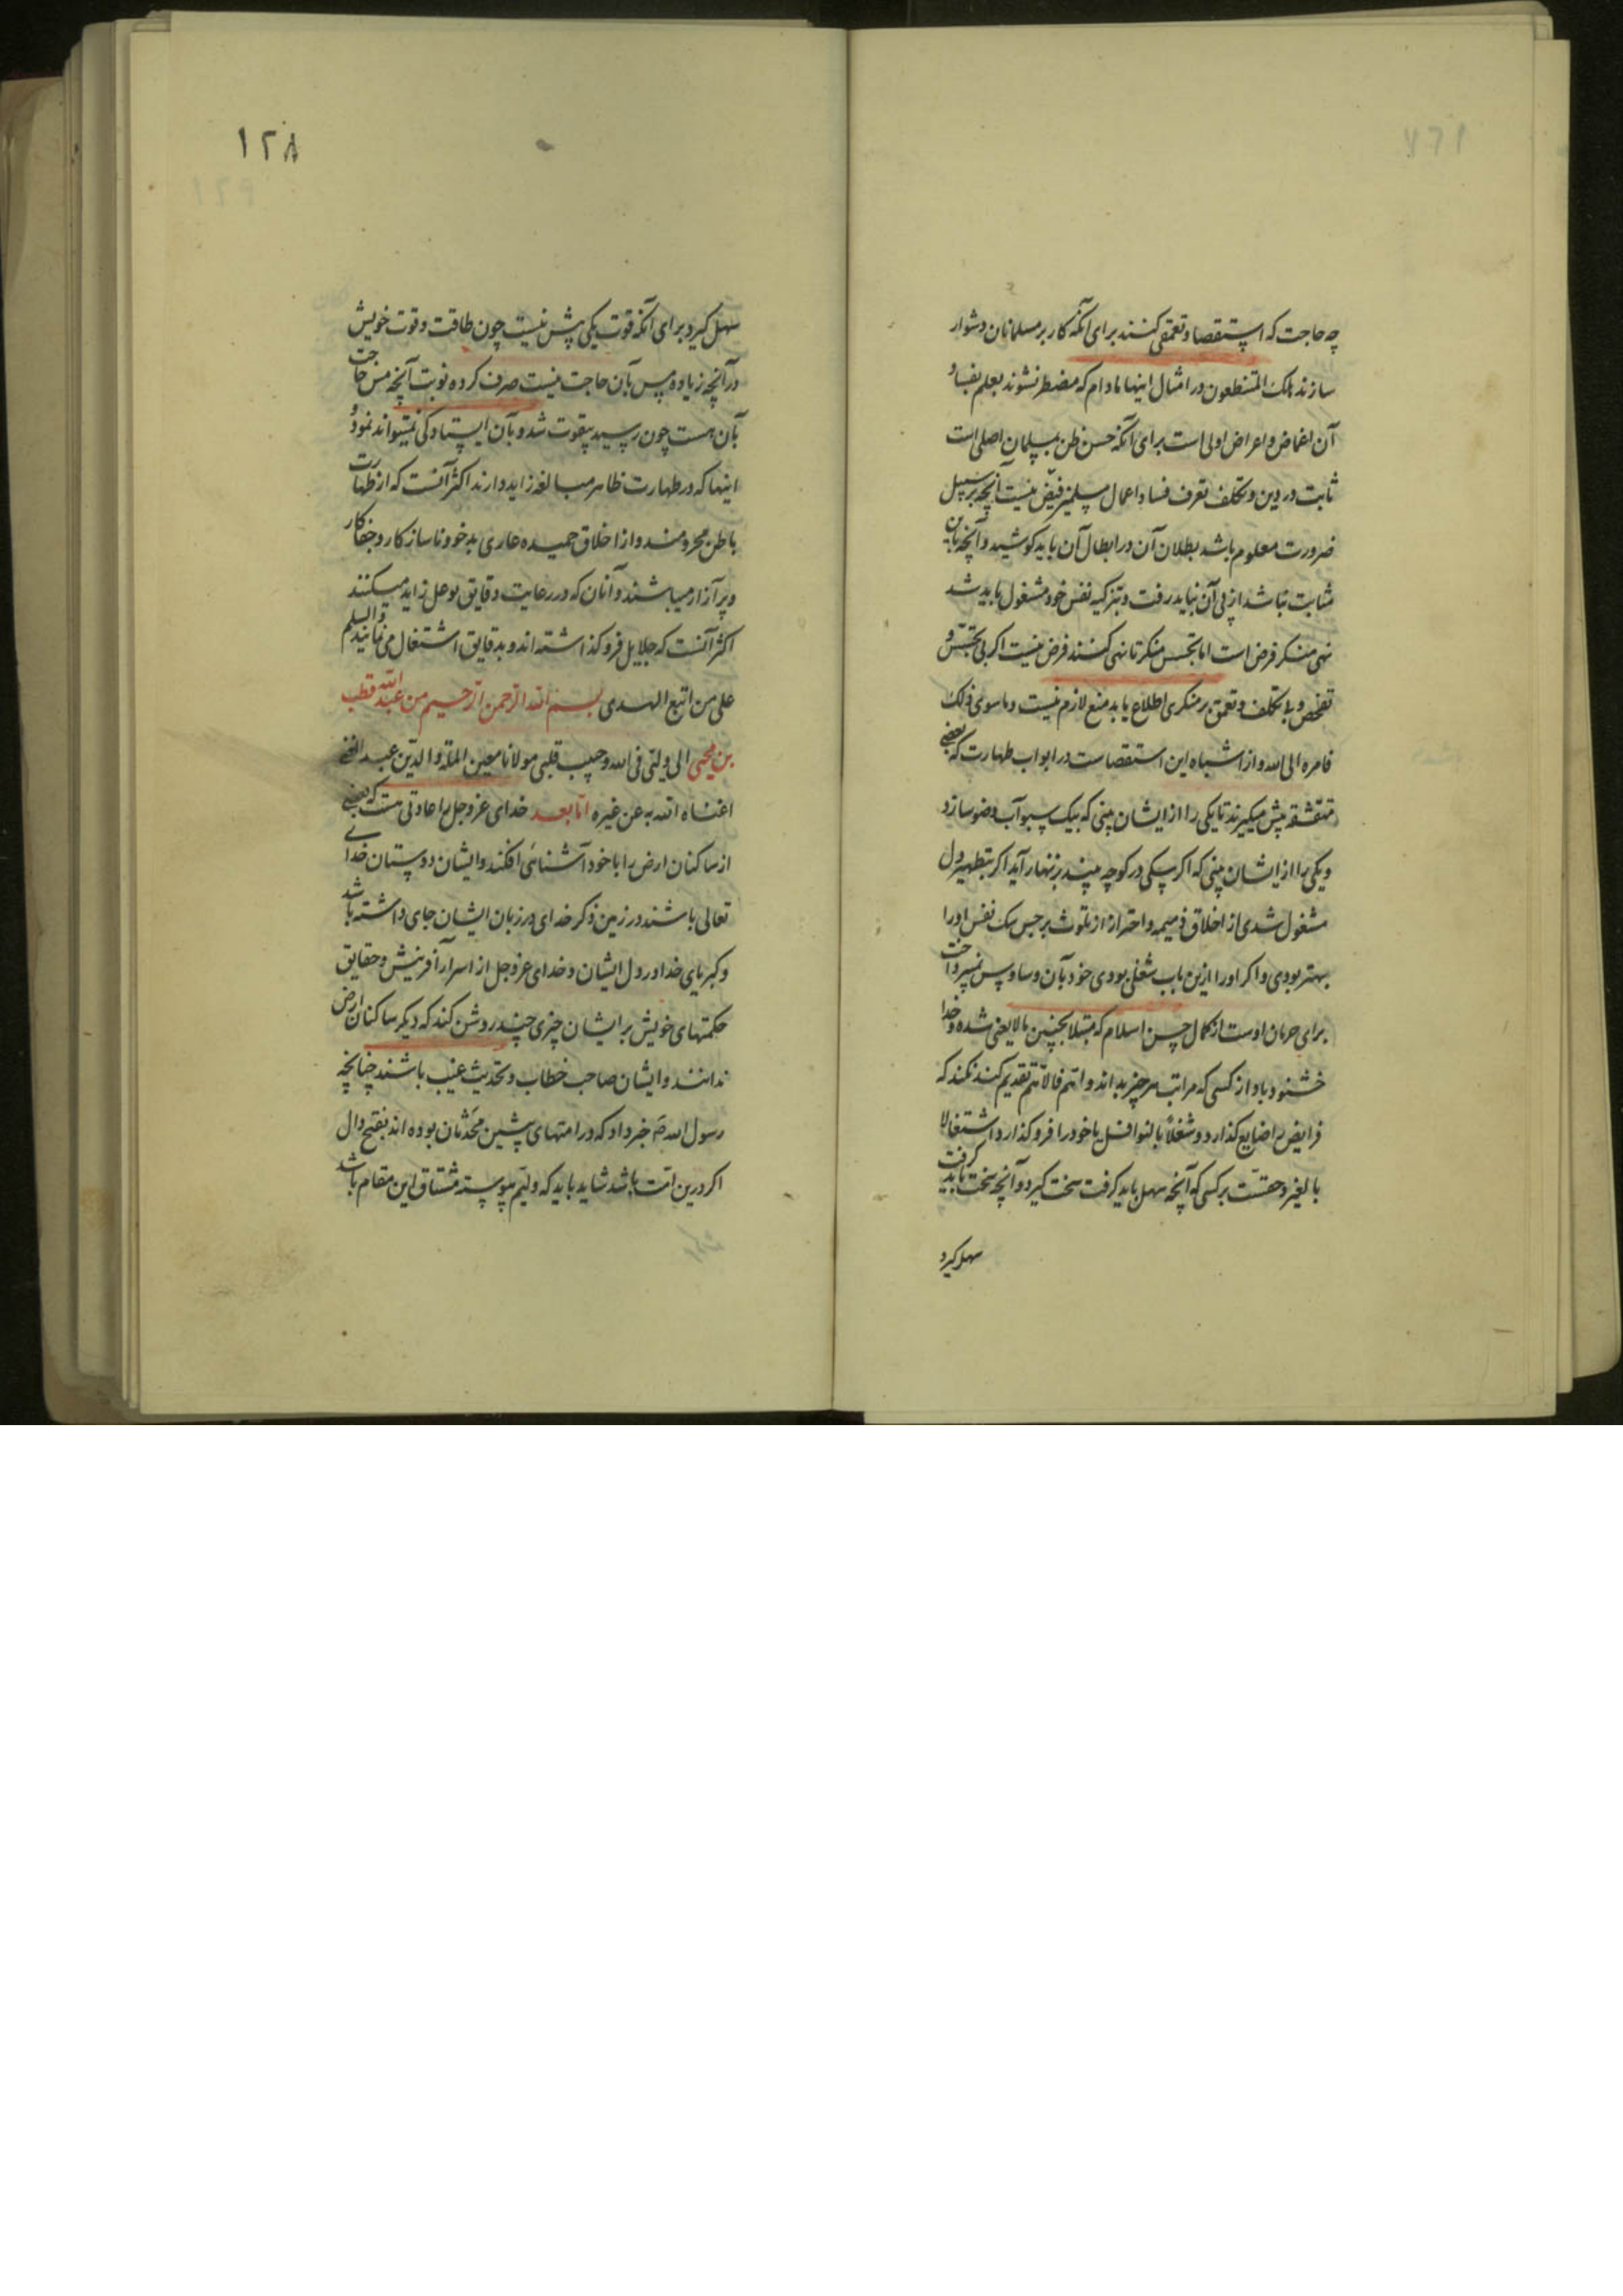 چه حاجت که استقصا و تعمقی کنند برای آنکه کار بر مسلمانان دشوار
سازند هلک المتنطعون در امثال اینها مادام که مضطر نشوند بعلم بفساد
آن اغماض و اعراض اولی است برای آنکه حسن ظن بمسلمان اصلی است
ثابت در دین و تکلف تعرف فساد اعمال مسلمین فرض نیست آنچه بر سبیل
ضرورت معلوم باشد بطلان آن در ابطال آن باید کوشید و آنچه باین
مثابت نباشد از پی آن نباید رفت و بتزکیه نفس خود مشغول باید شد
نهی منکر فرض است اما تجسس منکر تا نهی کنند فرض نیست اکر بی تجسس و
تفحص و بی تکلف و تعمق بر منکری اطلاع یابد منع لازم نیست و ما سوی ذلک
فامره الی الله و از اشباه این استقصاست در ابواب طهارت که بعضی
متقشفه پیش میکیرند تا یکی را از ایشان بینی که بیک سبو آب وضو سازد
و یکی را از ایشان بینی که اکر سکی در کوچه بیند بزنهار آید اکر بتطهیر دل
مشغول شدی از اخلاق ذمیمه و احتراز از تلوث برجس سک نفس او را
بهتر بودی و اکر او را ازین باب شغلی بودی خود بآن وساوس نپرداخت
برای حرمان اوست از کمال حسن اسلام که مبتلا بچنین مالایعنی شده و خدا
خشنود باد از کسی که مراتب هر چیز بداند و اهم فالاهم تقدیم کند نکند که
فرایض را ضایع کذارد و شغلاً بالنوافل یا خود را فرو کذارد اشتغالا
بالغیر و حقست بر کسی که آنچه سهل باید کرفت سخت کیرد و آنچه سخت باید کرفت
سهل کیرد
١٢٨
١٢٩
سهل کیرد برای آنکه قوت یکی بیش نیست چون طاقت و قوت خویش
در آنچه زیاده پس بآن حاجت نیست صرف کرده نوبت آنچه مس حاجت
بآن هست چون رسید بیقوت شد و بآن ایستادکی نمیتواند نمود و
اینها که در طهارت ظاهر مبالغه زاید دارند اکثر آنست که از طهارت
باطن محرومند و از اخلاق حمیده عاری بدخو و ناسازکار و جفاکار
و پر آزار میباشند و آنان که در رعایت دقایق توغل زاید میکنند
اکثر آنست که جلایل فرو کذاشته اند و بدقایق اشتغال می نمایند والسلم
علی من اتبع الهدی بسم الله الرحمن الرحیم من عبدالله قطب
بن محیی الی ولیی فی الله و حبیب قلبی مولانا معین المله و الدین عبدالغنی
اغناه الله به عن غیره اما بعد خدای عز و جل را عادتی هست که بعضی
از ساکنان ارض را با خود آشنائی افکند و ایشان دوستان خدای
تعالی باشند در زمین ذکر خدای در زبان ایشان جای داشته باشد
و کبریای خدا در دل ایشان و خدای عز و جل از اسرار آفرینش و حقایق
حکمتهای خویش بر ایشان چیزی چند روشن کند که دیکر ساکنان ارض
ندانند و ایشان صاحب خطاب و تحدیث غیب باشند چنانچه
رسول الله صه خبر داد که در امتهای پیشین محدثان بوده اند بفتح دال
اکر درین امت باشد شاید باید که ولیم پیوسته مشتاق این مقام باشد